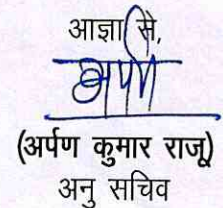 आज्ञा से,
(अर्पण कुमार राजू)
अनु सचिव